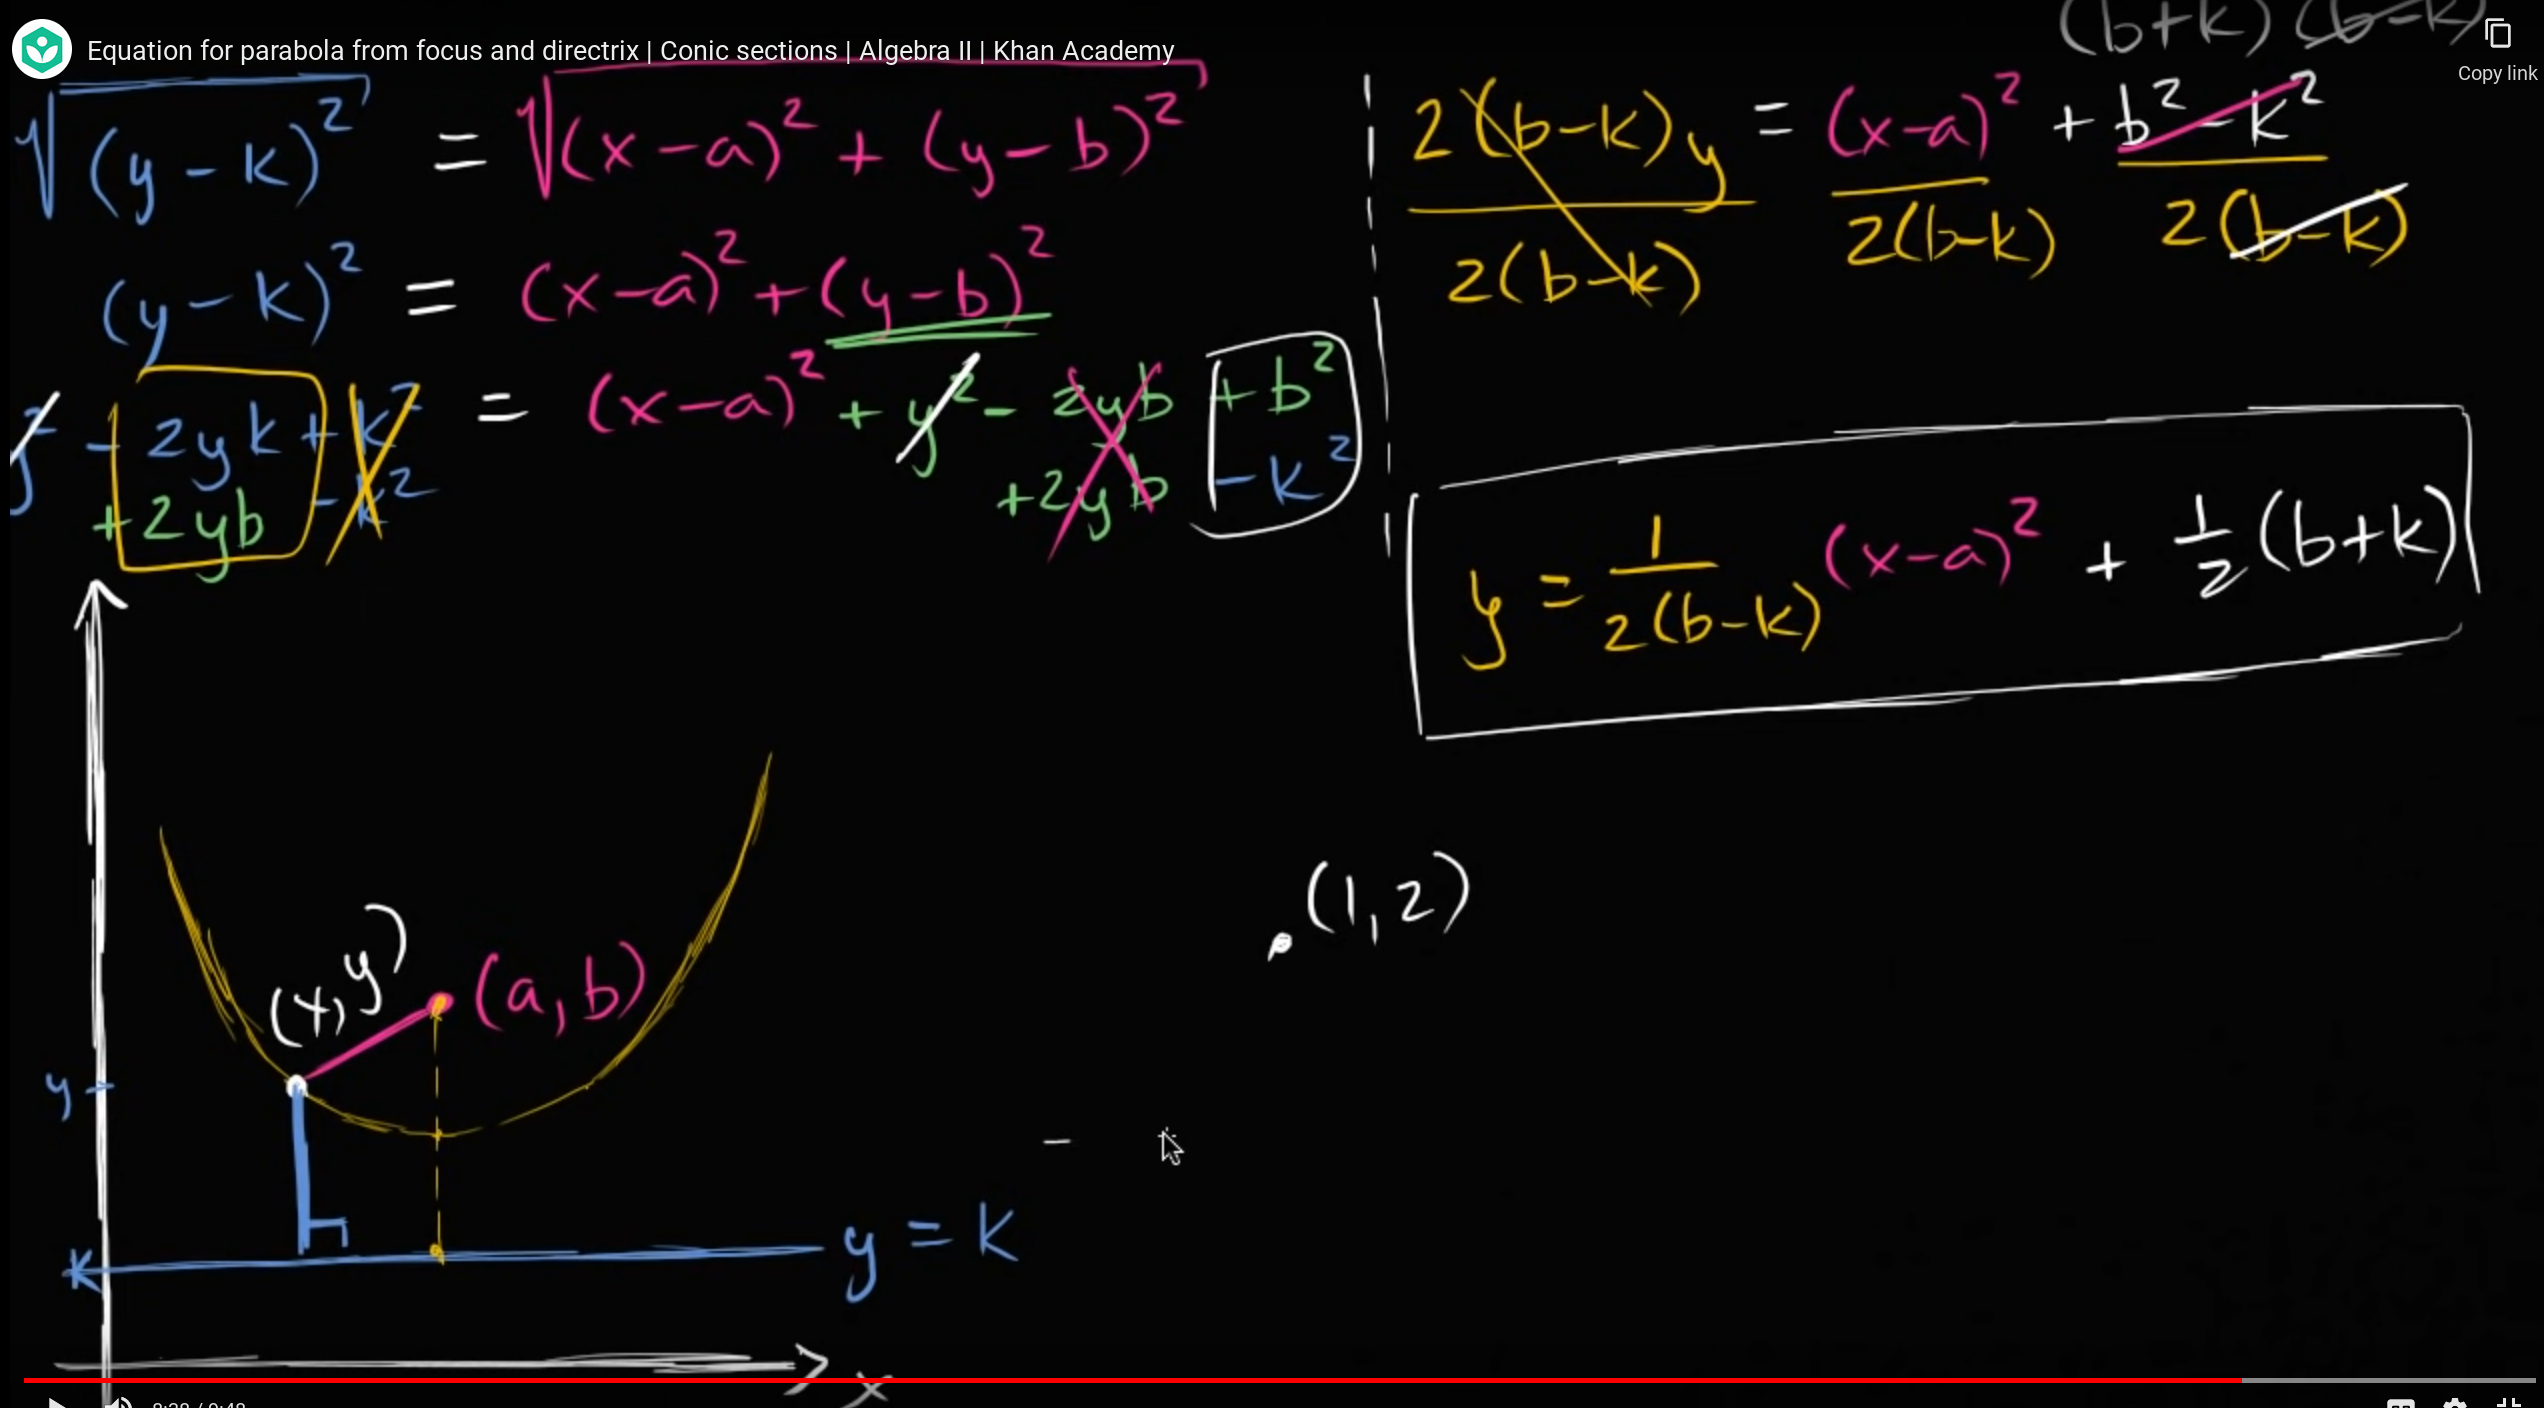 Equation for parabola from focus and directrix | Conic sections | Algebra II | Khan Academy
Copy link
(b+k)(b-k)
√(y-k)² = √(x-a)² + (y-b)²
(y-k)² = (x-a)² + (y-b)²
y² - 2yk + k² = (x-a)² + y² - 2yb + b²
+2yb - k² +2yb - k²
2(b-k)y = (x-a)² + b² - k²
2(b-k) 2(b-k) 2(b-k)
y = 1/2(b-k) (x-a)² + 1/2 (b+k)
(1,2)
(x,y)
(a,b)
y
y = k
k
x